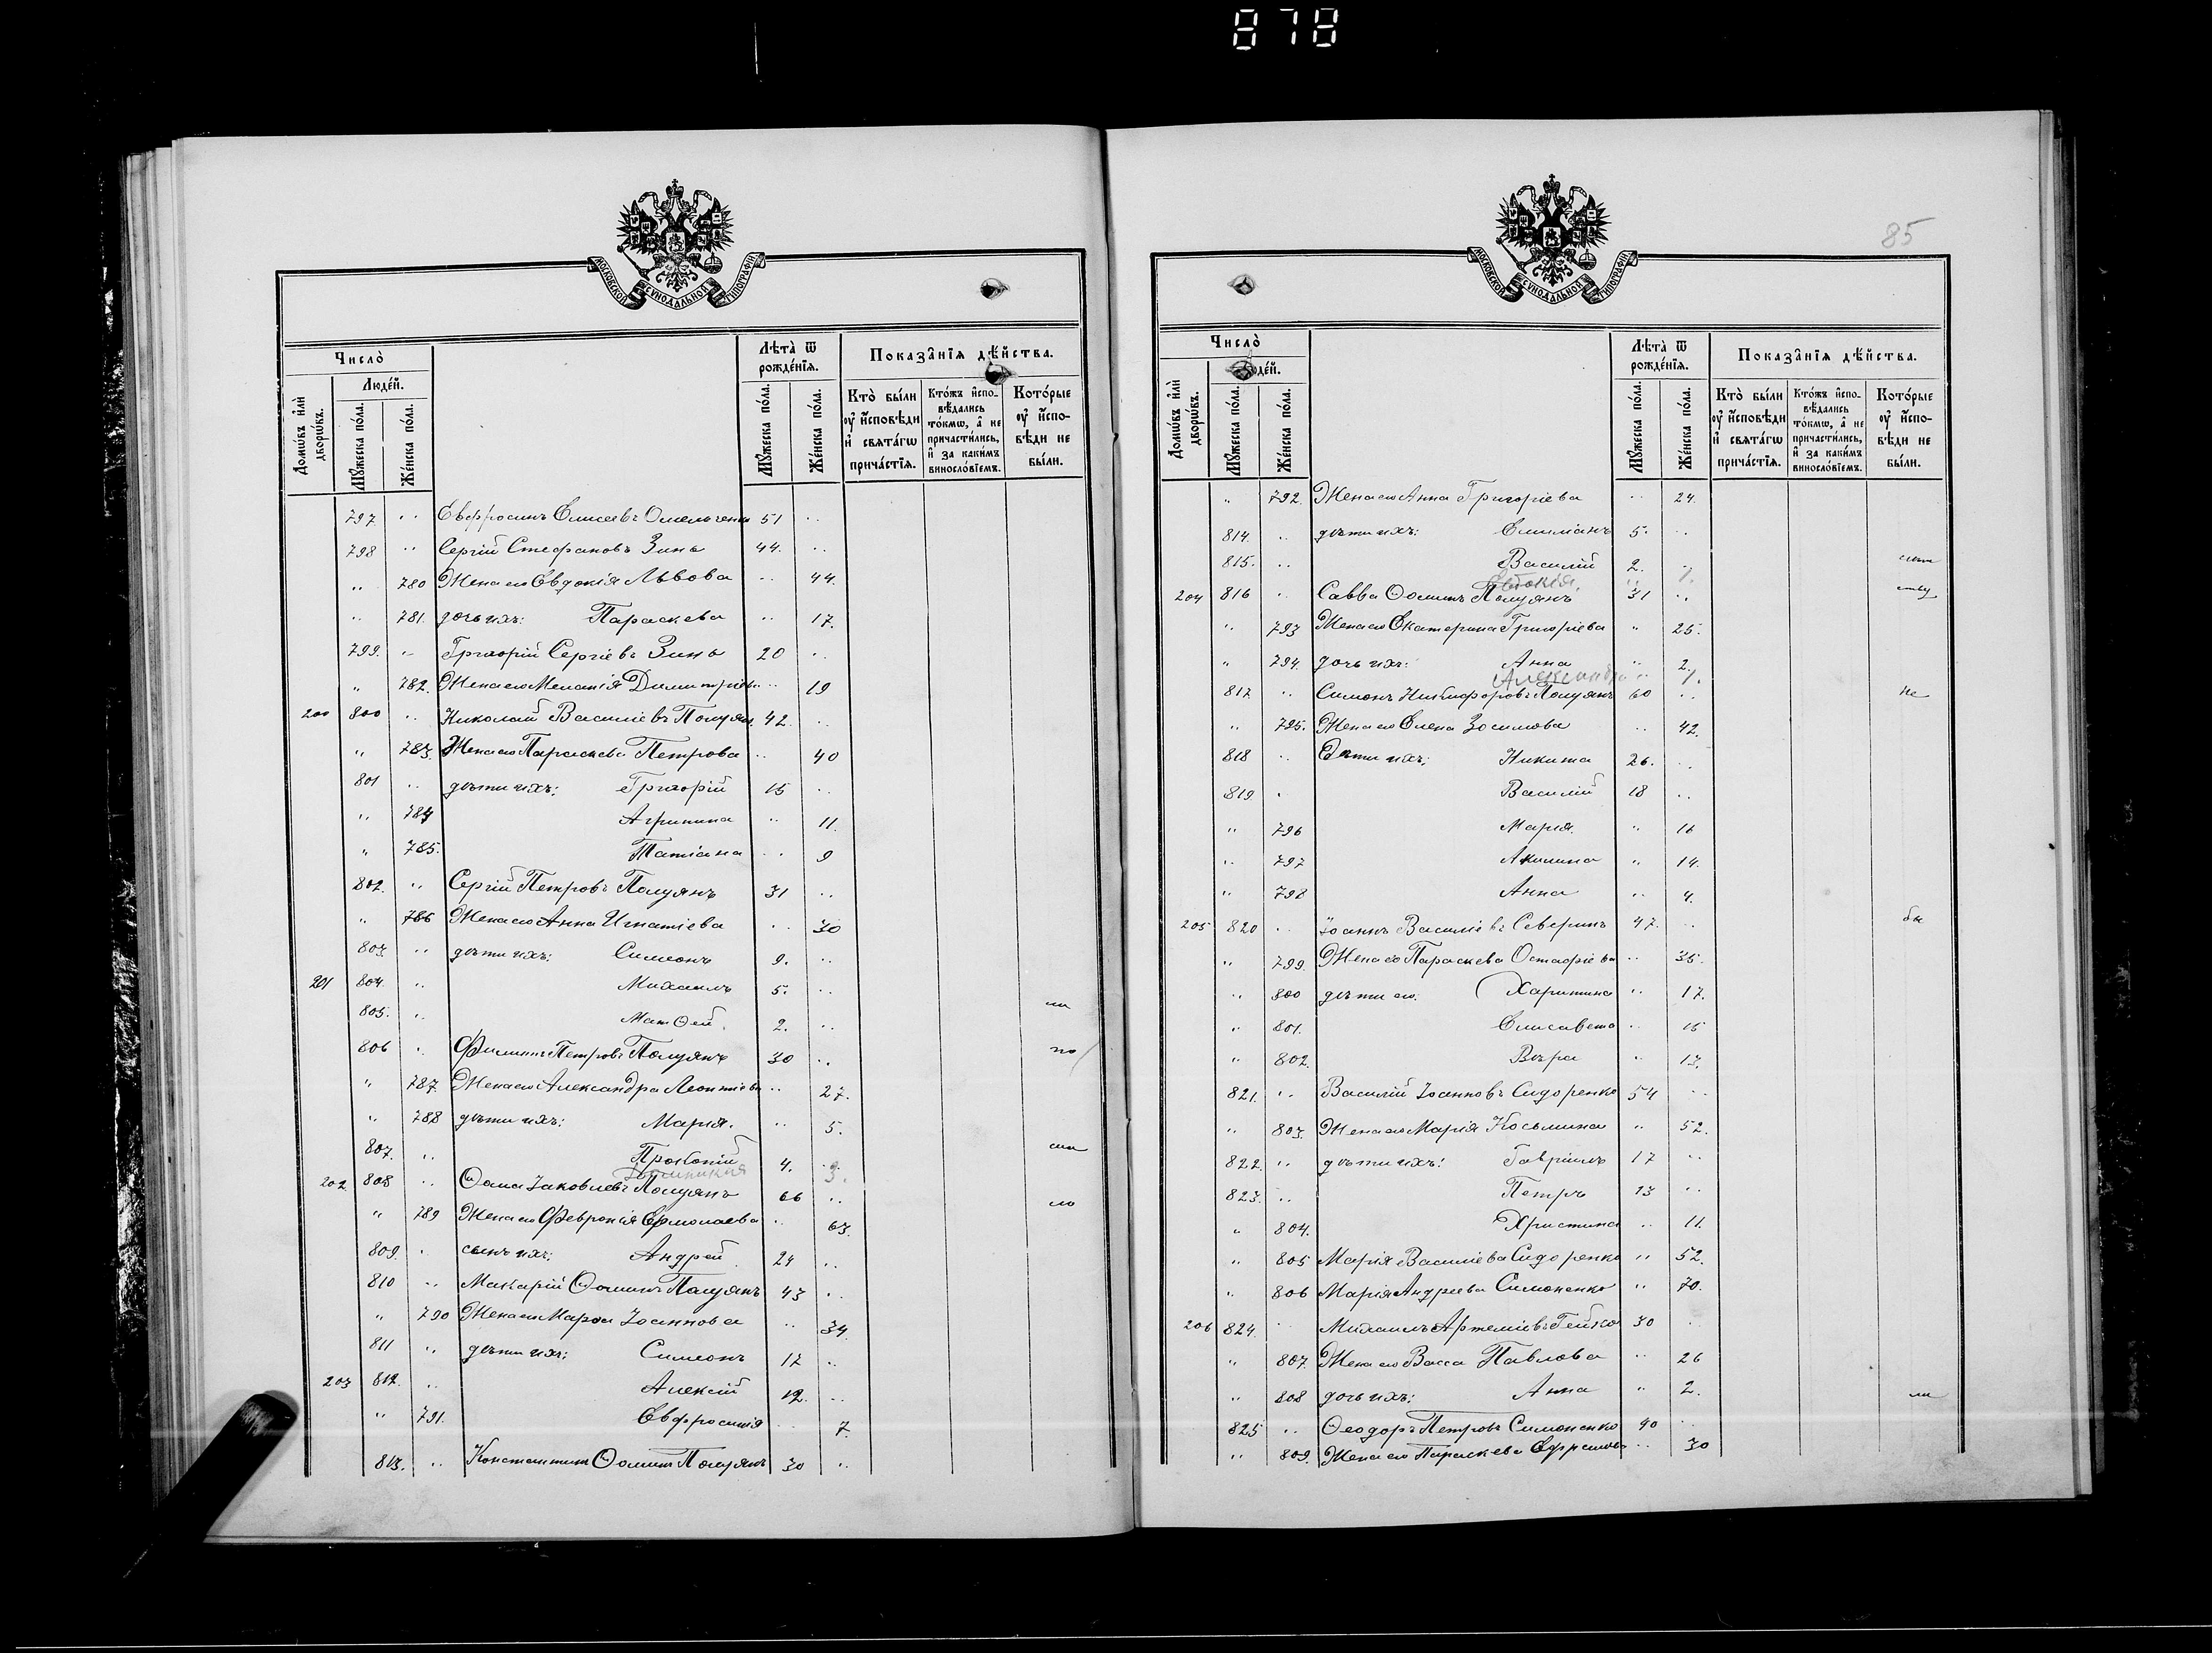 878
МОСКОВСКОЙ СУНОДАЛЬНОЙ ТИПОГРАФІИ
Число̀
Лѣта̀ ѿ рожде́нїѧ.
Показа̑нїѧ дѣ́йства.
Домѡ́въ и҆лѝ дворѡ́въ.
Люде́й.
Мꙋ́жеска по́ла.
Же́нска по́ла.
Мꙋ́жеска по́ла.
Же́нска по́ла.
Кто̀ бы́ли оу҆ и҆сповѣди и҆ свѧта́гѡ прича́стїѧ.
Кто́жъ и҆сповѣдались то́кмѡ, а҆ не причасти́лись, и҆ за каки́мъ виносло́вїемъ.
Кото́рые оу҆ и҆сповѣди не бы́ли.
797 " Евфросинъ Елисеевъ Омельченко 51 "
798 " Сергій Стефановъ Зинь 44. "
" 780 Жена его Евдокія Львова " 44.
" 781. дочь ихъ: Параскева " 17.
799. " Григорій Сергіевъ Зинь 20 "
" 782. Жена его Меланія Димитріева " 19
200 800 " Николай Василіевъ Полуянъ 42. "
" 783. Жена его Параскева Петрова " 40
801 " дѣти ихъ: Григорій 15 "
" 784 Агрипина " 11.
" 785. Татіана " 9
802. " Сергій Петровъ Полуянъ 31 "
" 786 Жена его Анна Игнатіева " 30
803. " дѣти ихъ: Симеонъ 9. "
201 804. " Михаилъ 5. "
805. " Матѳей. 2. "
806 " Филиппъ Петровъ Полуянъ 30 " по
" 787. Жена его Александра Леонтіева " 27.
" 788 дѣти ихъ: Марія. " 5.
807. " Прокопій 4. "
3.
202 808 " Ѳома Іаковлевъ Полуянъ 66 "
" 789 Жена его Феѵронія Ермолаева " 63.
809. " сынъ ихъ: Андрей 24 "
810 " Макарій Ѳоминъ Полуянъ 43 "
" 790 Жена его Марѳа Іоаннова " 34.
811 " дѣти ихъ: Симеонъ 17 "
203 812. " Алексій 12. "
" 791. Евфросинія " 7.
813. " Константинъ Ѳоминъ Полуянъ 30 "
85
МОСКОВСКОЙ СУНОДАЛЬНОЙ ТИПОГРАФІИ
Число̀
Лѣта̀ ѿ рожде́нїѧ.
Показа̑нїѧ дѣ́йства.
Домѡ́въ и҆лѝ дворѡ́въ.
Люде́й.
Мꙋ́жеска по́ла.
Же́нска по́ла.
Мꙋ́жеска по́ла.
Же́нска по́ла.
Кто̀ бы́ли оу҆ и҆сповѣди и҆ свѧта́гѡ прича́стїѧ.
Кто́жъ и҆сповѣдались то́кмѡ, а҆ не причасти́лись, и҆ за каки́мъ виносло́вїемъ.
Кото́рые оу҆ и҆сповѣди не бы́ли.
" 792. Жена его Анна Григоріева " 24.
814. " дѣти ихъ: Емиліанъ 5. "
815. " Василій 2. "
Евдокія " 1.
204 816 " Савва Ѳоминъ Полуянъ 31 "
" 793 Жена его Екатерина Григоріева " 25.
" 794. дочь ихъ: Анна " 2.
Александра " 1.
817. " Симонъ Никифоровъ Полуянъ 60 " не
" 795. Жена его Елена Зосимова " 42.
818 " Дѣти ихъ: Никита 26. "
819 " Василій 18 "
" 796 Марія. " 16
" 797 Акилина " 14.
" 798 Анна " 4.
205 820 " Іоаннъ Василіевъ Северинъ 47. " бы
" 799. Жена его Параскева Остафіева " 35.
" 800 дѣти его. Харитина " 17.
" 801. Елисавета " 15
" 802. Вѣра " 13.
821. " Василій Іоанновъ Сидоренко 54 "
" 803. Жена его Марія Косьмина " 52.
822. " дѣти ихъ: Гавріилъ 17 "
823. " Петръ 13 "
" 804. Христина " 11.
" 805 Марія Василіева Сидоренко " 52.
" 806 Марія Андреева Симоненко " 70.
206 824. " Михаилъ Артеміевъ Гейко 30 "
" 807. Жена его Васса Павлова " 26
" 808 дочь ихъ: Анна " 2. ли
825 " Ѳеодоръ Петровъ Симоненко 40 "
" 809. Жена его Параскева Ефремова " 30